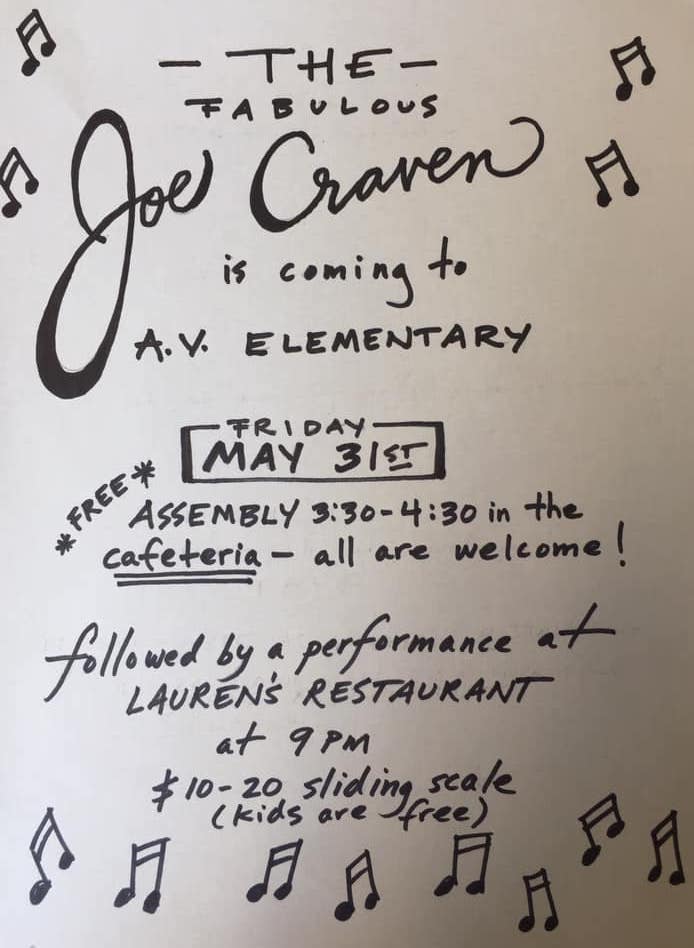 - THE -
FABULOUS
Joe Craven
is coming to
A.V. ELEMENTARY
FRIDAY
MAY 31ST
*FREE*
ASSEMBLY 3:30-4:30 in the
cafeteria - all are welcome!
followed by a performance at
LAUREN'S RESTAURANT
at 9 PM
$10-20 sliding scale
(kids are free)